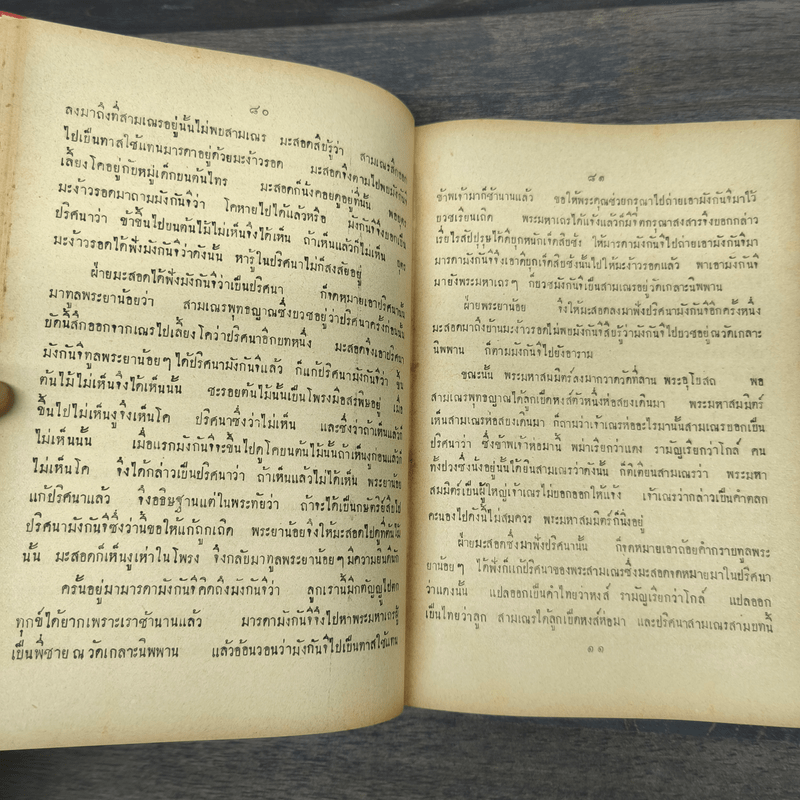 ๘๐
ลงมาถึงที่สามเณรอยู่นั้นไม่พบสามเณร มะสอดสืบรู้ว่า สามเณรสึกออก
ไปเป็นทาสใช้แทนมารดาอยู่ด้วยมะง้าวรอด มะสอดจึงตามไปพบมังกันจี
เลี้ยงโคอยู่กับหมู่เด็กบนต้นไทร มะสอดก็นั่งคอยดูอยู่ที่นั้น พอบุตร
มะง้าวรอดมาถามมังกันจีว่า โคหายไปใต้แล้วหรือ มังกันจีจึงบอกเป็น
ปริศนาว่า ข้าขึ้นไปบนต้นไม้ไม่เห็นจึงได้เห็น ถ้าเห็นแล้วก็ไม่เห็น บุตร
มะง้าวรอดได้ฟังมังกันจีว่าดังนั้น หารู้ในปริศนาไม่ก็สงสัยอยู่
ฝ่ายมะสอดได้ฟังมังกันจีว่าเป็นปริศนา ก็จดหมายเอาปริศนานั้น
มาทูลพระยาน้อยว่า สามเณรพุทธญาณซึ่งบวชอยู่ว่าปริศนาครั้งก่อนนั้น
บัดนี้สึกออกจากเณรไปเลี้ยงโคว่าปริศนาอีกบทหนึ่ง มะสอดจึงเอาปริศนา
มังกันจีทูลพระยาน้อยๆ ได้ปริศนามังกันจีแล้ว ก็แก้ปริศนามังกันจีว่า ขึ้น
ต้นไม้ไม่เห็นจึงได้เห็นนั้น ชะรอยต้นไม้นั้นเป็นโพรงมีอสรพิษอยู่ เมื่อ
ขึ้นไปไม่เห็นงูจึงเห็นโค ปริศนาซึ่งว่าไม่เห็น และซึ่งว่าถ้าเห็นแล้วก็
ไม่เห็นนั้น เมื่อแรกมังกันจีจะขึ้นไปดูโคบนต้นไม้นั้นถ้าเห็นงูก่อนแล้วก็
ไม่เห็นโค จึงได้กล่าวเป็นปริศนาว่า ถ้าเห็นแล้วไม่ได้เห็น พระยาน้อย
แก้ปริศนาแล้ว จึงอธิษฐานแต่ในพระทัยว่า ถ้าจะได้เป็นกษัตริย์สืบไป
ปริศนามังกันจีซึ่งว่านี้ขอให้แก้ถูกเถิด พระยาน้อยจึงให้มะสอดไปดูที่ต้นไม้
นั้น มะสอดก็เห็นงูเห่าในโพรง จึงกลับมาทูลพระยาน้อยๆ มีความยินดีนัก
ครั้นอยู่มามารดามังกันจีคิดถึงมังกันจีว่า ลูกเรานี้มีกตัญญูไปตก
ทุกข์ได้ยากเพราะเราช้านานแล้ว มารดามังกันจีจึงไปหาพระมหาเถรผู้
เป็นพี่ชาย ณ วัดเกลาะนิพพาน แล้วอ้อนวอนว่ามังกันจีไปเป็นทาสใช้แทน
๘๑
ข้าพเจ้ามาก็ช้านานแล้ว ขอให้พระคุณช่วยกรุณาไปถ่ายเอามังกันจีมาไว้
บวชเรียนเถิด พระมหาเถรได้แจ้งแล้วก็มีจิตกรุณาสงสารจึงบอกกล่าว
เรี่ยไรสัปปุรุษได้ผุกหนักเจ็ดสิบชั่ง ให้มารดามังกันจีไปถ่ายเอามังกันจีมา
มารดามังกันจีจึงเอาผุกเจ็ดสิบชั่งนั้นไปให้มะง้าวรอดแล้ว พาเอามังกันจี
มายังพระมหาเถรๆ ก็บวชมังกันจีเป็นสามเณรอยู่วัดเกลาะนิพพาน
ฝ่ายพระยาน้อย จึงให้มะสอดลงมาฟังปริศนามังกันจีอีกครั้งหนึ่ง
มะสอดมาถึงบ้านมะง้าวรอดไม่พบมังกันจีสืบรู้ว่ามังกันจีไปบวชอยู่ ณ วัดเกลาะ
นิพพาน ก็ตามมังกันจีไปยังอาราม
ขณะนั้น พระมหาสมมิตร์ลงมากวาดวัดที่ลาน พระอุโบสถ พอ
สามเณรพุทธญาณได้ลูกเป็ดหงส์ตัวหนึ่งห่อสบงเดินมา พระมหาสมมิตร์
เห็นสามเณรห่อสบงเดินมา ก็ถามว่าเจ้าเณรห่ออะไรมานั้นสามเณรบอกเป็น
ปริศนาว่า ซึ่งข้าพเจ้าห่อมานี้ พม่าเรียกว่าแดง รามัญเรียกว่าโกล์ คน
ทั้งปวงซึ่งนั่งอยู่นั้นได้ยินสามเณรว่าดังนั้น ก็ติเตียนสามเณรว่า พระมหา
สมมิตร์เป็นผู้ใหญ่เจ้าเณรไม่บอกออกให้แจ้ง เจ้าเณรว่ากล่าวเป็นคำตลก
คะนองไปดังนี้ไม่สมควร พระมหาสมมิตร์ก็นิ่งอยู่
ฝ่ายมะสอดซึ่งมาฟังปริศนานั้น ก็จดหมายเอาถ้อยคำกราบทูลพระ
ยาน้อยๆ ได้ฟังก็แก้ปริศนาของพระสามเณรซึ่งมะสอดจดหมายมาในปริศนา
ว่าแดงนั้น แปลออกเป็นคำไทยว่าหงส์ รามัญเรียกว่าโกล์ แปลออก
เป็นไทยว่าลูก สามเณรได้ลูกเป็ดหงส์ห่อมา และปริศนาสามเณรสามบทนี้
๑๑